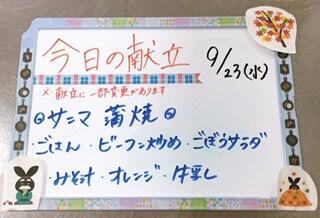 今日の献立
9/23(水)
・※・献立に一部変更があります
◎サンマ蒲焼◎
・ごはん・ビーフン炒め・ごぼうサラダ
・みそ汁・オレンジ・牛乳